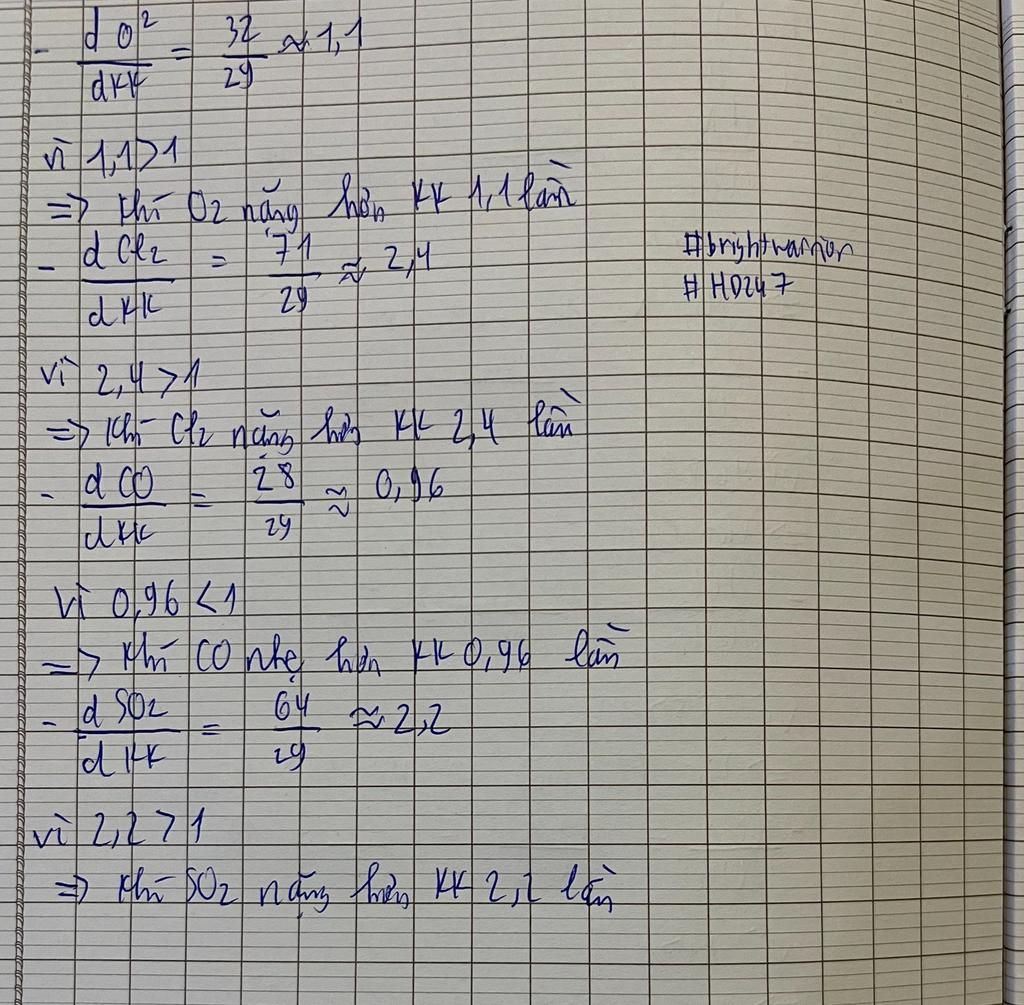 - d O² / dKK = 32 / 29 ≈ 1,1
vì 1,1 > 1
=> Khí O2 nặng hơn KK 1,1 lần
- d Cl2 / dKK = 71 / 29 ≈ 2,4
#brightwarrior
#HD247
vì 2,4 > 1
=> Khí Cl2 nặng hơn KK 2,4 lần
- d CO / dKK = 28 / 29 ≈ 0,96
vì 0,96 < 1
=> Khí CO nhẹ hơn KK 0,96 lần
- d SO2 / d KK = 64 / 29 ≈ 2,2
vì 2,2 > 1
=> Khí SO2 nặng hơn KK 2,2 lần